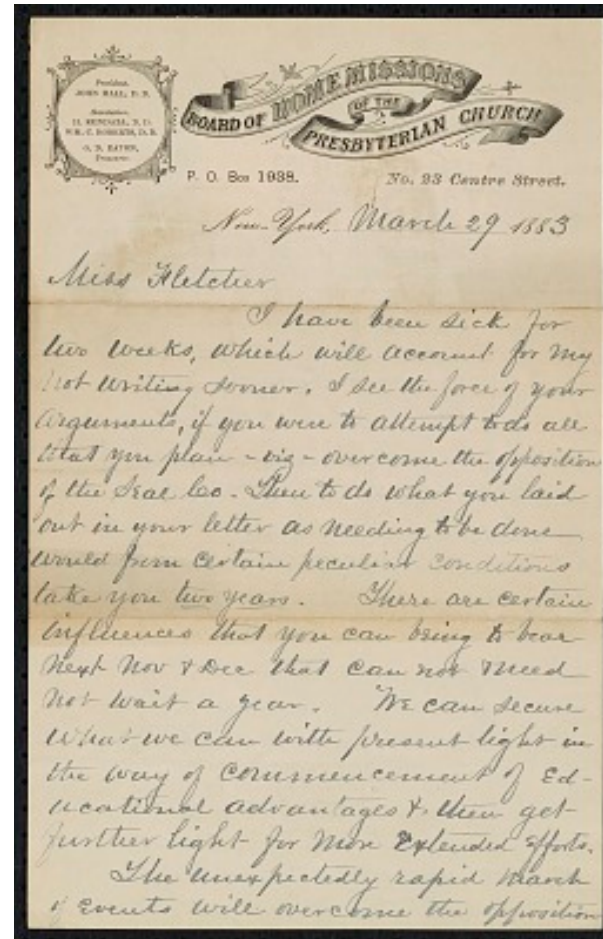 President,
JOHN HALL, D. D.
Secretaries,
H. KENDALL, D. D.
WM. C. ROBERTS, D. D.
O. D. EATON,
Treasurer.
BOARD OF HOME MISSIONS
OF THE
PRESBYTERIAN CHURCH
P. O. Box 1938.
No. 23 Centre Street.
New-York, March 29 1883
Miss Fletcher
I have been sick for
two weeks, which will account for my
not writing sooner. I see the force of your
arguments, if you were to attempt to do all
that you plan - viz - overcome the opposition
of the Seal Co. Then to do what you laid
out in your letter as needing to be done
would from certain peculiar conditions
take you two years. There are certain
influences that you can bring to bear
next Nov & Dec that can not & need
not wait a year. We can secure
what we can with present light in
the way of commencement of Ed-
ucational advantages & then get
further light for more extended efforts.
The unexpectedly rapid march
of events will overcome the opposition